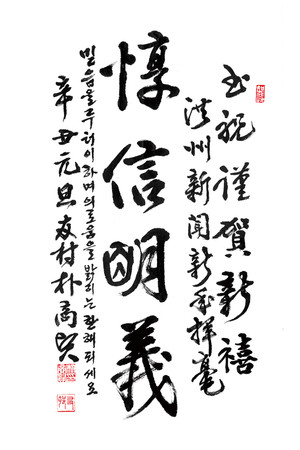 祝謹賀新禧
洪州新聞新年揮毫
惇信明義
믿음을 두터이 하며 의로움을 밝히는 한 해 되세요
辛丑元旦友村朴商